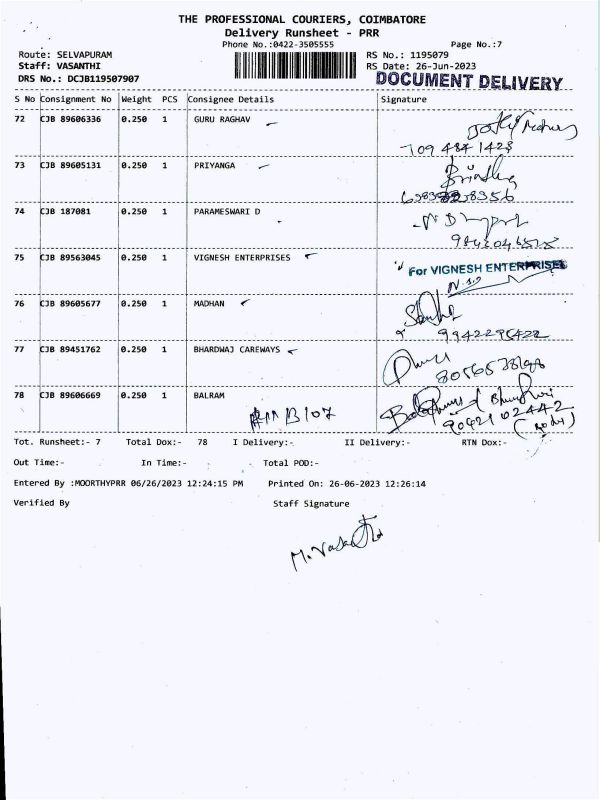 THE PROFESSIONAL COURIERS, COIMBATORE
Delivery Runsheet - PRR
Phone No.:0422-3505555 Page No.:7
Route: SELVAPURAM RS No.: 1195079
Staff: VASANTHI RS Date: 26-Jun-2023
DRS No.: DCJB119507907 DOCUMENT DELIVERY
S No Consignment No Weight PCS Consignee Details Signature
72 CJB 89606336 0.250 1 GURU RAGHAV
709 484 1423
73 CJB 89605131 0.250 1 PRIYANGA
74 CJB 187081 0.250 1 PARAMESWARI D
75 CJB 89563045 0.250 1 VIGNESH ENTERPRISES
For VIGNESH ENTERPRISES
76 CJB 89605677 0.250 1 MADHAN
77 CJB 89451762 0.250 1 BHARDWAJ CAREWAYS
78 CJB 89606669 0.250 1 BALRAM
B107
90421 02442
Tot. Runsheet:- 7 Total Dox:- 78 I Delivery:- II Delivery:- RTN Dox:-
Out Time:- In Time:- Total POD:-
Entered By :MOORTHYPRR 06/26/2023 12:24:15 PM Printed On: 26-06-2023 12:26:14
Verified By Staff Signature
M. Vasanthi